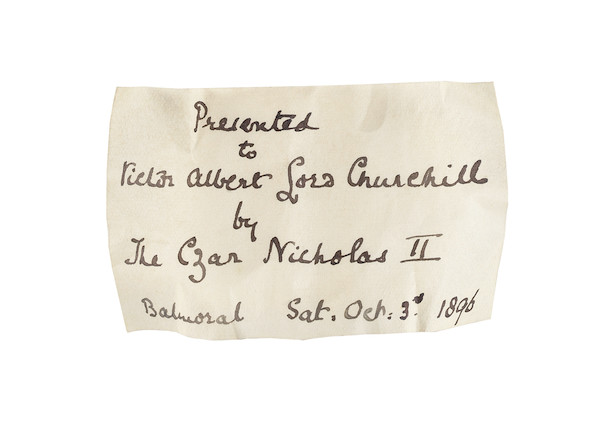 Presented
to
Victor Albert Lord Churchill
by
The Czar Nicholas II
Balmoral Sat. Oct. 3rd 1896